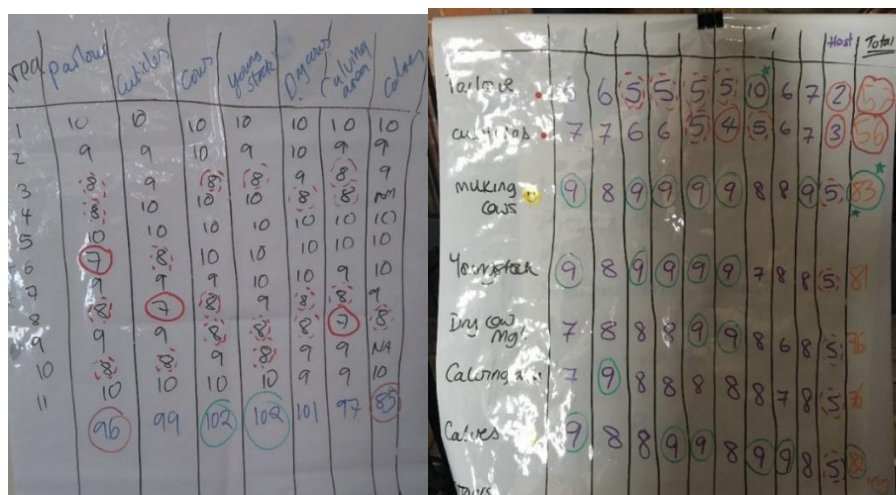 Parlour Cubicles Cows Young stock Dry cows Calving area Calves
1 10 10 10 10 10 10 10
2 9 9 10 9 10 9 9
3 8 9 8 8 9 8 9
4 8 10 10 10 8 8 NA
5 10 10 10 10 10 10 10
6 7 8 10 10 10 10 10
7 9 9 9 10 10 9 10
8 8 7 8 9 8 8 9
9 9 9 8 8 8 7 8
10 8 8 9 8 9 9 NA
11 10 10 10 10 9 9 10
96 99 102 102 101 97 85
Host Total
Parlour 6 6 5 5 5 5 10 6 7 2 57
Cubicles 7 7 6 6 5 4 5 6 7 3 56
Milking cows 9 8 9 9 9 9 8 8 9 5 83
Youngstock 9 8 9 9 9 9 7 8 8 5 81
Dry cow Mgt 7 8 8 8 9 9 8 6 8 5 76
Calving 7 9 8 8 8 8 8 7 8 5 76
Calves 9 8 8 9 9 8 9 9 8 5